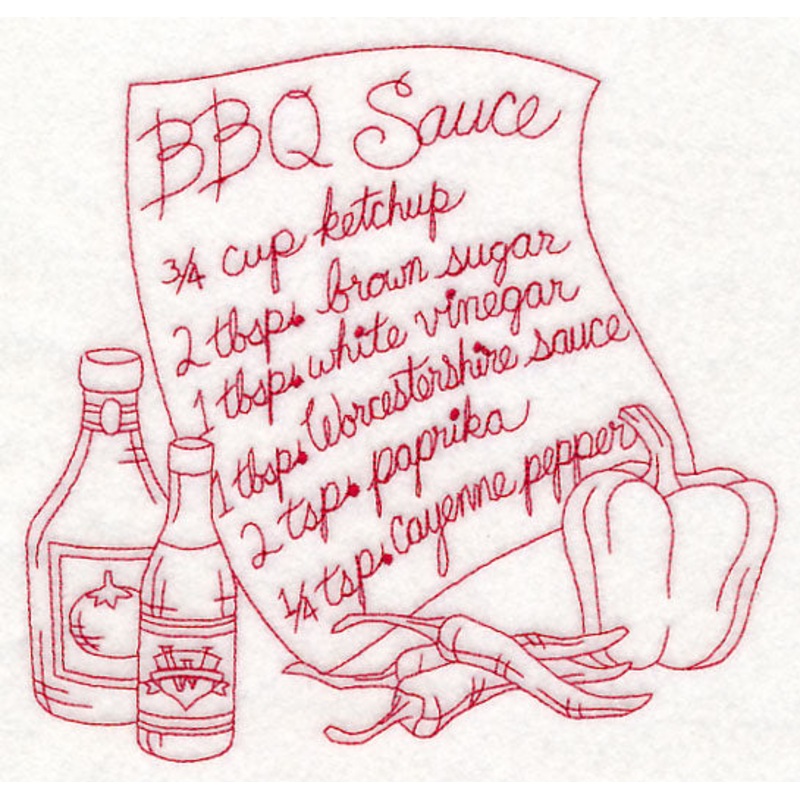 BBQ Sauce
3/4 cup ketchup
2 tbsp. brown sugar
1 tbsp. white vinegar
1 tbsp. Worcestershire sauce
2 tsp. paprika
1/4 tsp. Cayenne pepper
W